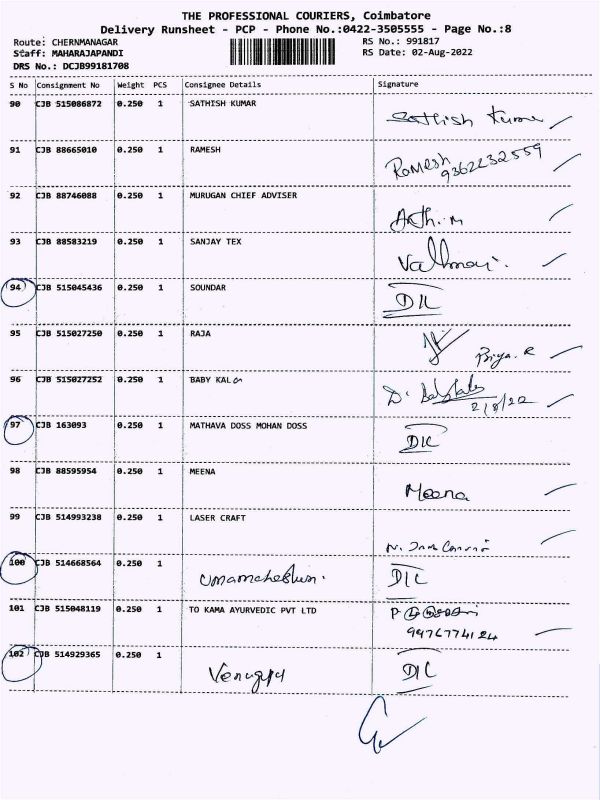 THE PROFESSIONAL COURIERS, Coimbatore
Delivery Runsheet - PCP - Phone No.:0422-3505555 - Page No.:8
Route: CHERNMANAGAR RS No.: 991817
Staff: MAHARAJAPANDI RS Date: 02-Aug-2022
DRS No.: DCJB99181708
S No Consignment No Weight PCS Consignee Details Signature
90 CJB 515086872 0.250 1 SATHISH KUMAR Sathish Kumar
91 CJB 88665010 0.250 1 RAMESH Ramesh
9362232559
92 CJB 88746088 0.250 1 MURUGAN CHIEF ADVISER
93 CJB 88583219 0.250 1 SANJAY TEX
94 CJB 515045436 0.250 1 SOUNDAR DIL
95 CJB 515027250 0.250 1 RAJA Priya. R
96 CJB 515027252 0.250 1 BABY KAL
2/8/22
97 CJB 163093 0.250 1 MATHAVA DOSS MOHAN DOSS DIL
98 CJB 88595954 0.250 1 MEENA Meena
99 CJB 514993238 0.250 1 LASER CRAFT
100 CJB 514668564 0.250 1 DIL
101 CJB 515048119 0.250 1 TO KAMA AYURVEDIC PVT LTD
9976774124
102 CJB 514929365 0.250 1 DIL